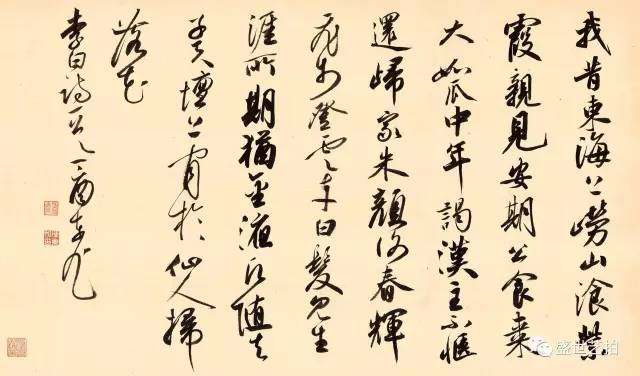 我昔東海上嶗山飡紫
霞親見安期公食棗
大如瓜中年謁漢主不愜
還歸家朱顏謝春輝
飛步登雲車白髮見生
涯所期猶金液願隨夫
子天壇上閒於仙人掃
落花
李白詩一首丁酉
盛世艺拍